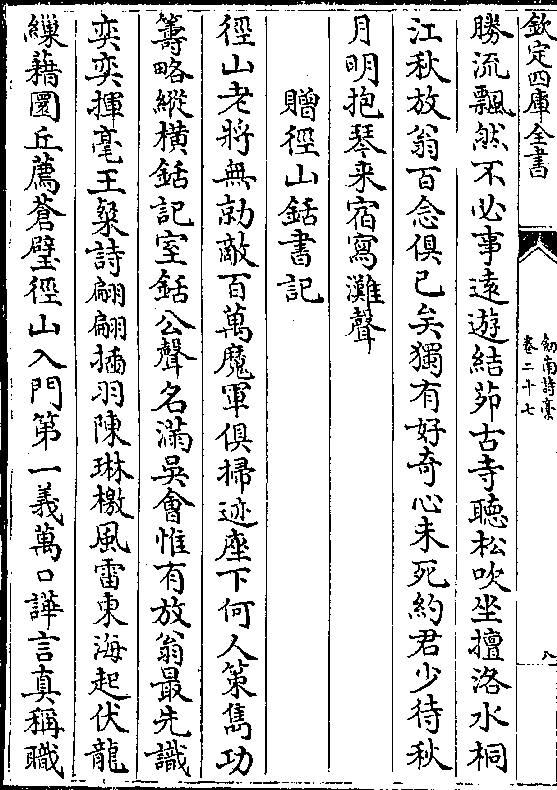 欽定四庫全書
劍南詩藁
卷二十七
八
勝流飄然不必事逺遊結茆古寺聽松吹坐擅洛水桐
江秋放翁百念俱已矣獨有好奇心未死約君少待秋
月明抱琴来宿寫灘聲
贈徑山銛書記
徑山老將無勍敵百萬魔軍俱掃迹座下何人策雋功
籌略縱横銛記室銛公聲名滿吳會惟有放翁最先識
奕奕揮毫王粲詩翩翩插羽陳琳檄風雷東海起伏龍
繅藉圜丘薦蒼璧徑山入門第一義萬口譁言真稱職